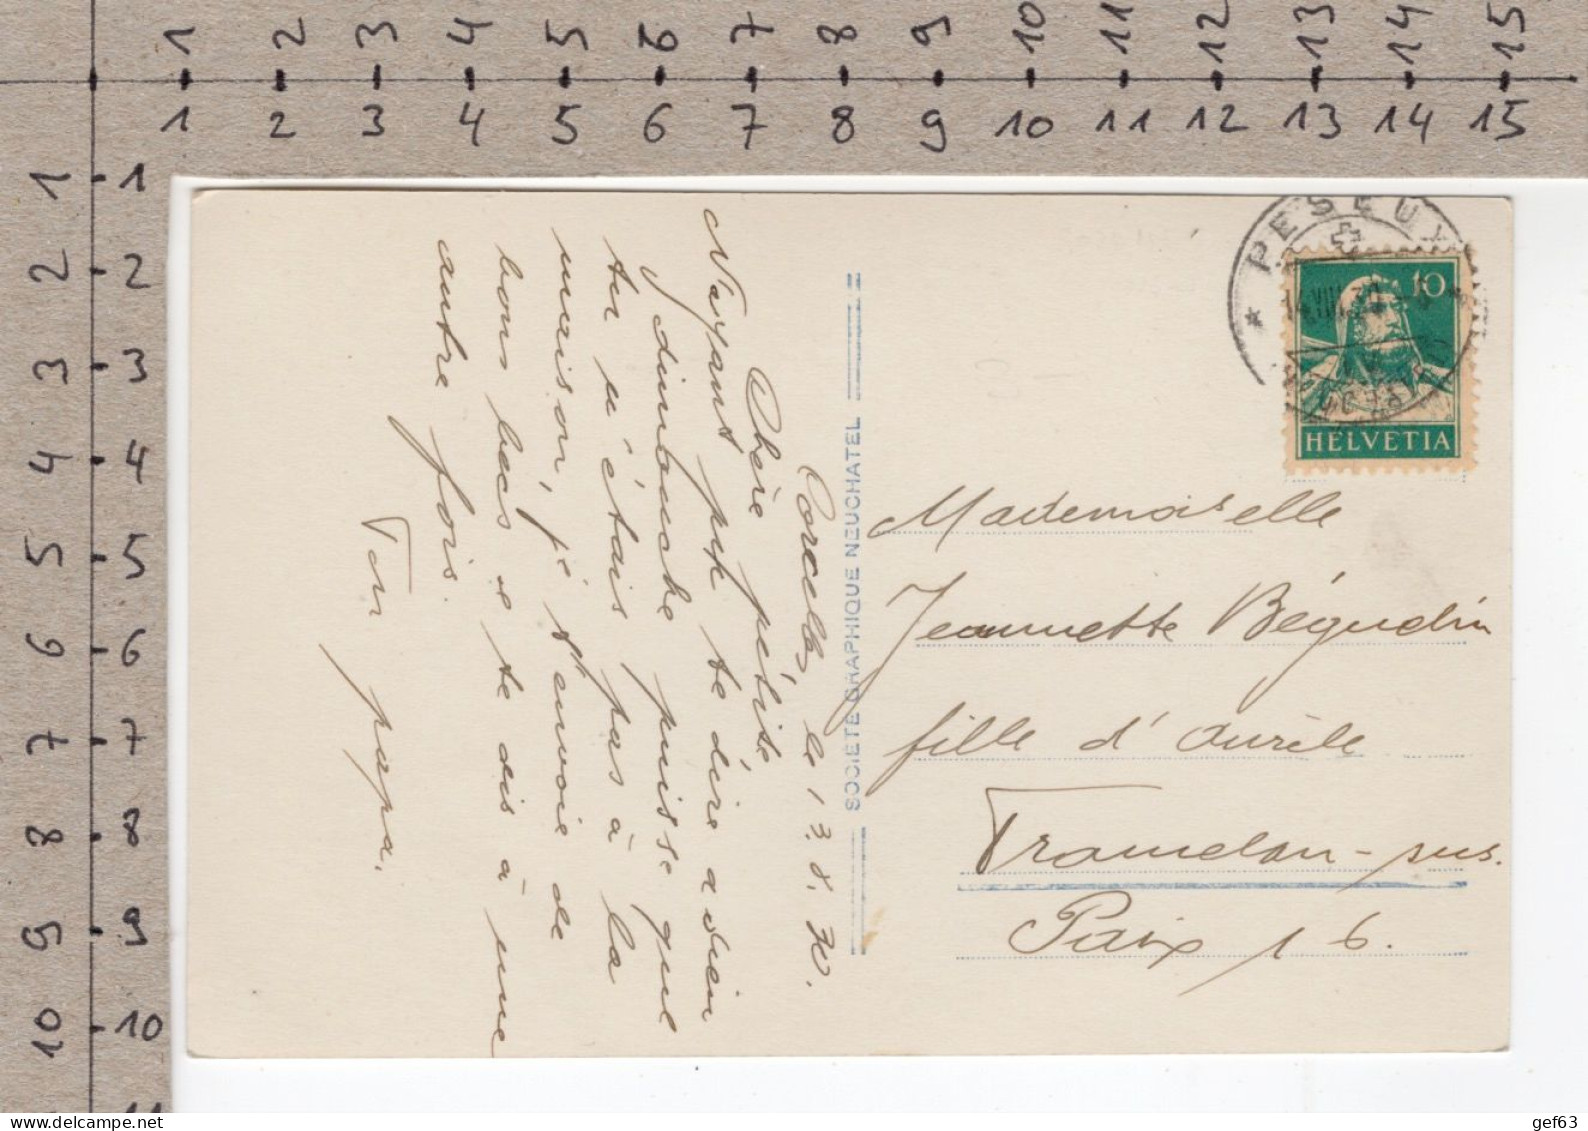 1 2 3 4 5 6 7 8 9 10 11 12 13 14 15
1 2 3 4 5 6 7 8 9 10 11 12 13 14 15
1 1
2 2
3 3
4 4
5 5
6 6
7 7
8 8
9 9
10 10
11
Corcelles, le 13.8.30.
Chère pétité,
N'ayant pu te dire adieu
dimanche puisse que
tu n'étais pas à la
maison, je t'envoie de
bons becs e te dis à une
autre fois.
Ton papa.
SOCIÉTÉ GRAPHIQUE NEUCHATEL
PESEUX
14.VIII.30
10
HELVETIA
Mademoiselle
Jeannette Béguelin
fille d'Aurèle
Tramelan-sus.
Paix 16.
gef63